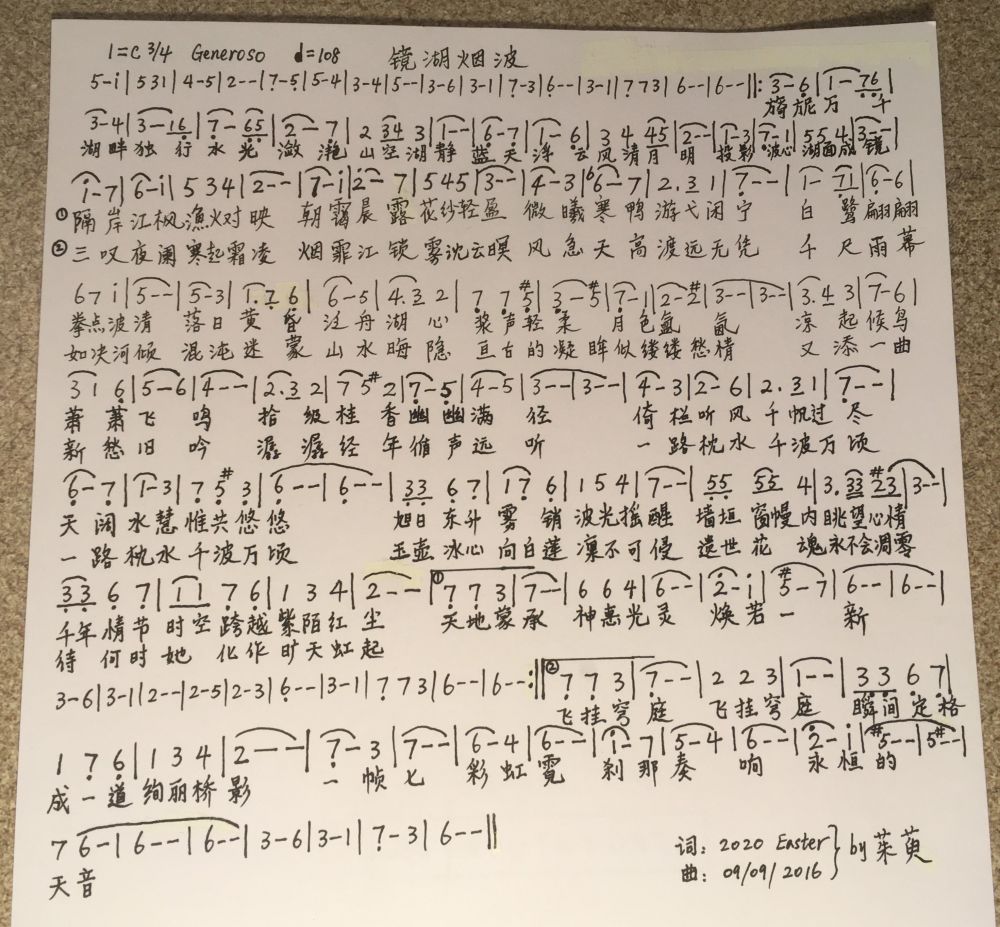 1=C 3/4 Generoso d=108 镜湖烟波
5-i|531|4-5|2--|7-5|5-4|3-4|5--|3-6|3-1|7-3|6--|3-1|773|6--|6--‖:3-6|1-76|
旖旎万 千
3-4|3-16|7-65|2-7|2 34 3|1--|6-7|1-6|3 4 45|2--|1-3|7-1|55 4|3--|
湖畔独 行 水 光 潋 滟 山空湖静 蓝天浮云风清月 明 投影波心湖面成镜
i-7|6-i|534|2--|7-i|2-7|545|3--|4-3|6-7|2.31|7--|1-71|6-6|
①隔岸江枫渔火对映 朝霭晨露花纱轻盈 微曦寒鸭游弋闲宁 白鹭翩翩
②三叹夜阑寒起霜凌 烟霏江锁雾沈云暝 风急天高渡远无凭 千尺雨幕
67i|5--|5-3|1.76|6-5|4.32|77#5|3-#5|7-1|2-#2|3--|3--|3.43|7-6|
拳点波清 落日黄昏 泛舟湖心 浆声轻柔 月色氤 氲 凉起候鸟
如决河倾 混沌迷蒙 山水晦隐 亘古的凝眸似缕缕愁情 又添一曲
316|5-6|4--|2.32|75#2|7-5|4-5|3--|3--|4-3|2-6|2.31|7--|
萧萧飞鸣 拾级桂香幽幽满 径 倚栏听风千帆过尽
新愁旧吟 潺潺经年脩声远 听 一路枕水千波万顷
6-7|1-3|75#3|6--|6--|3367|176|154|7--|55 55 4|3.33#23|3--|
天阔水慧惟共悠悠 旭日东升雾销波光摇醒 墙垣窗幔内眺望心情
一路枕水千波万顷 玉壶冰心向白莲凛不可侵 遗世花魂永不会凋零
3367|1176|134|2--|①773|7--|664|6--|2-i|#5-7|6--|6--|
千年情节时空跨越紫陌红尘 天地蒙承神惠光灵 焕若一 新
待何时她化作旷天虹起
3-6|3-1|2--|2-5|2-3|6--|3-1|773|6--|6--:‖②773|7--|223|1--|3367|
飞挂穹庭 飞挂穹庭 瞬间定格
176|134|2--|7-3|7--|6-4|6--|i-7|5-4|6--|2-i|#5--|5#--|
成一道绚丽桥影 一帧七彩虹霓刹那奏响 永恒的
7 6-|6--|6--|3-6|3-1|7-3|6--‖
天音
词: 2020 Easter
曲: 09/09/2016
by 茱萸